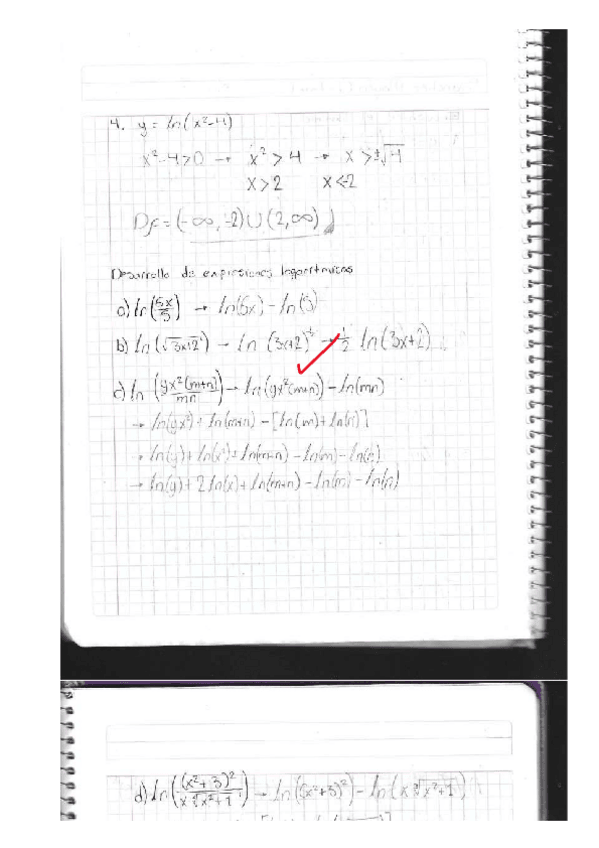 4. y = ln(x²-4)
x²-4>0 → x²>4 → x>±√4
x>2 x<-2
Df = (-∞,-2)∪(2,∞)
Desarrollo de expresiones logaritmicas
a) ln(6x/5) → ln(6x) - ln(5)
b) ln(√3x+2) → ln (3x+2)^½ → ½ ln(3x+2)
c) ln (yx²(m+n)/mn) → ln(yx²(m+n)) - ln(mn)
→ ln(yx²) + ln(m+n) - [ln(m)+ln(n)]
→ ln(y) + ln(x²) + ln(m+n) - ln(m) - ln(n)
→ ln(y) + 2 ln(x) + ln(m+n) - ln(m) - ln(n)
d) ln((x²+3)²/x∛x²+1) → ln((x²+3)²) - ln(x∛x²+1)